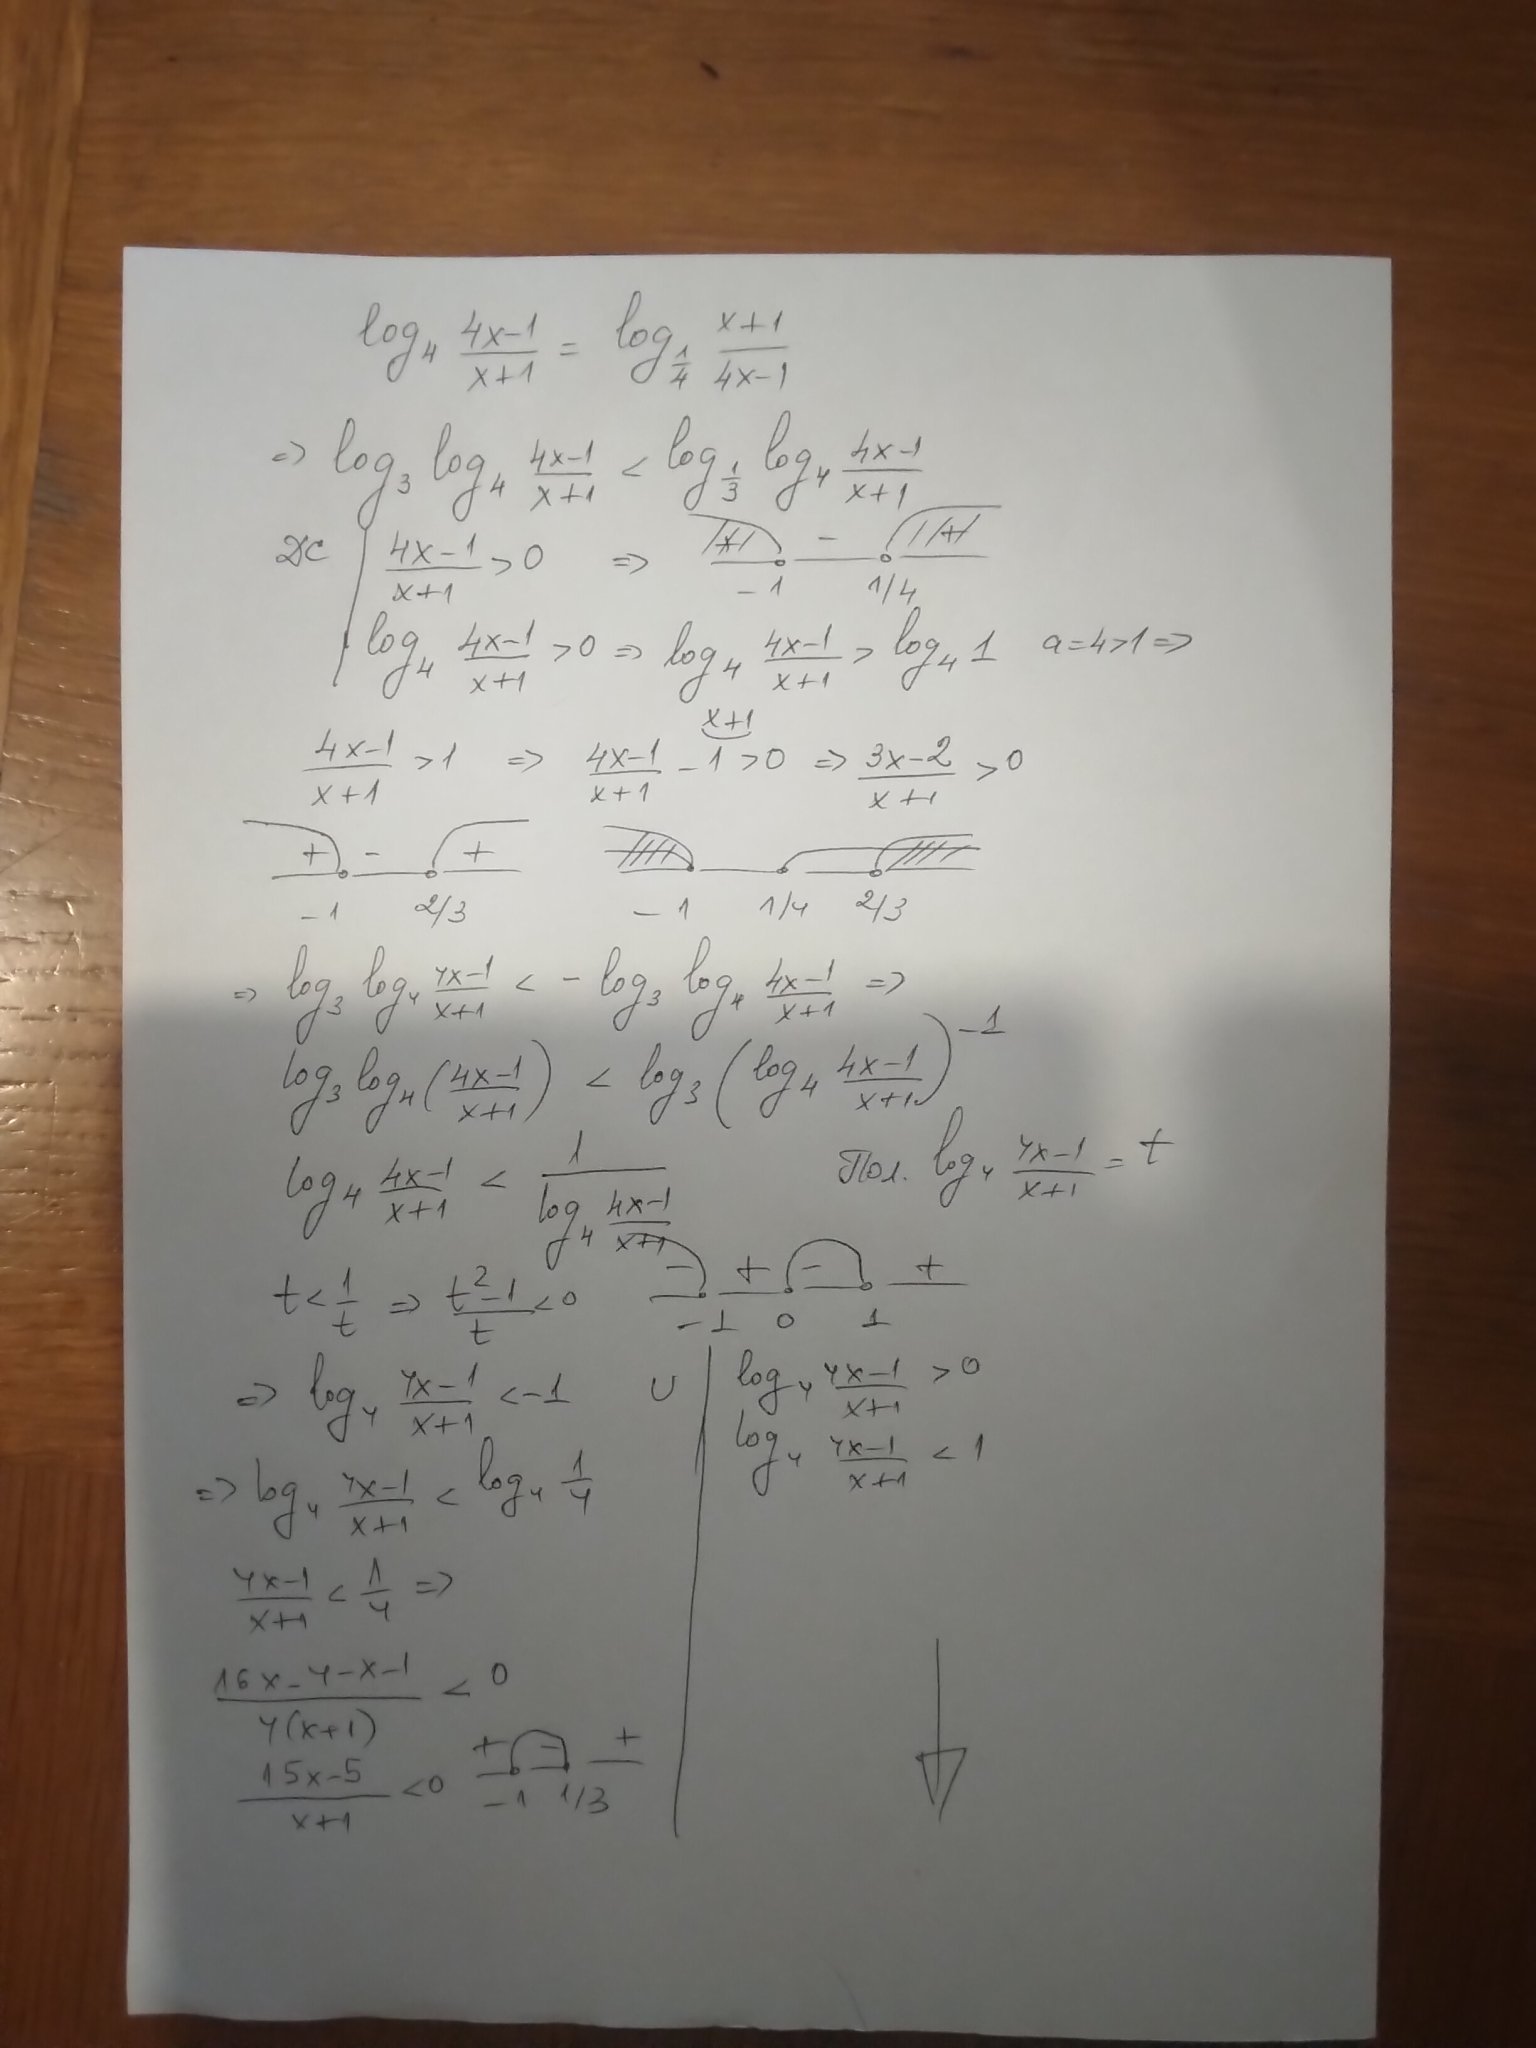 log₄ (4x-1)/(x+1) = log_{1/4} (x+1)/(4x-1)
=> log₃ log₄ (4x-1)/(x+1) < log_{1/3} log₄ (4x-1)/(x+1)
ДС | (4x-1)/(x+1) > 0 => + - + -1 1/4
log₄ (4x-1)/(x+1) > 0 => log₄ (4x-1)/(x+1) > log₄ 1 a=4>1 =>
x+1
(4x-1)/(x+1) > 1 => (4x-1)/(x+1) - 1 > 0 => (3x-2)/(x+1) > 0
+ - +
-1 2/3 -1 1/4 2/3
=> log₃ log₄ (4x-1)/(x+1) < - log₃ log₄ (4x-1)/(x+1) =>
log₃ log₄ ((4x-1)/(x+1)) < log₃ (log₄ (4x-1)/(x+1))^{-1}
log₄ (4x-1)/(x+1) < 1/(log₄ (4x-1)/(x+1)) Пол. log₄ (4x-1)/(x+1) = t
t < 1/t => (t²-1)/t < 0 - + - + -1 0 1
=> log₄ (4x-1)/(x+1) < -1 ∪ | log₄ (4x-1)/(x+1) > 0
log₄ (4x-1)/(x+1) < 1
=> log₄ (4x-1)/(x+1) < log₄ 1/4
(4x-1)/(x+1) < 1/4 =>
(16x-4-x-1)/(4(x+1)) < 0
(15x-5)/(x+1) < 0 + - + -1 1/3